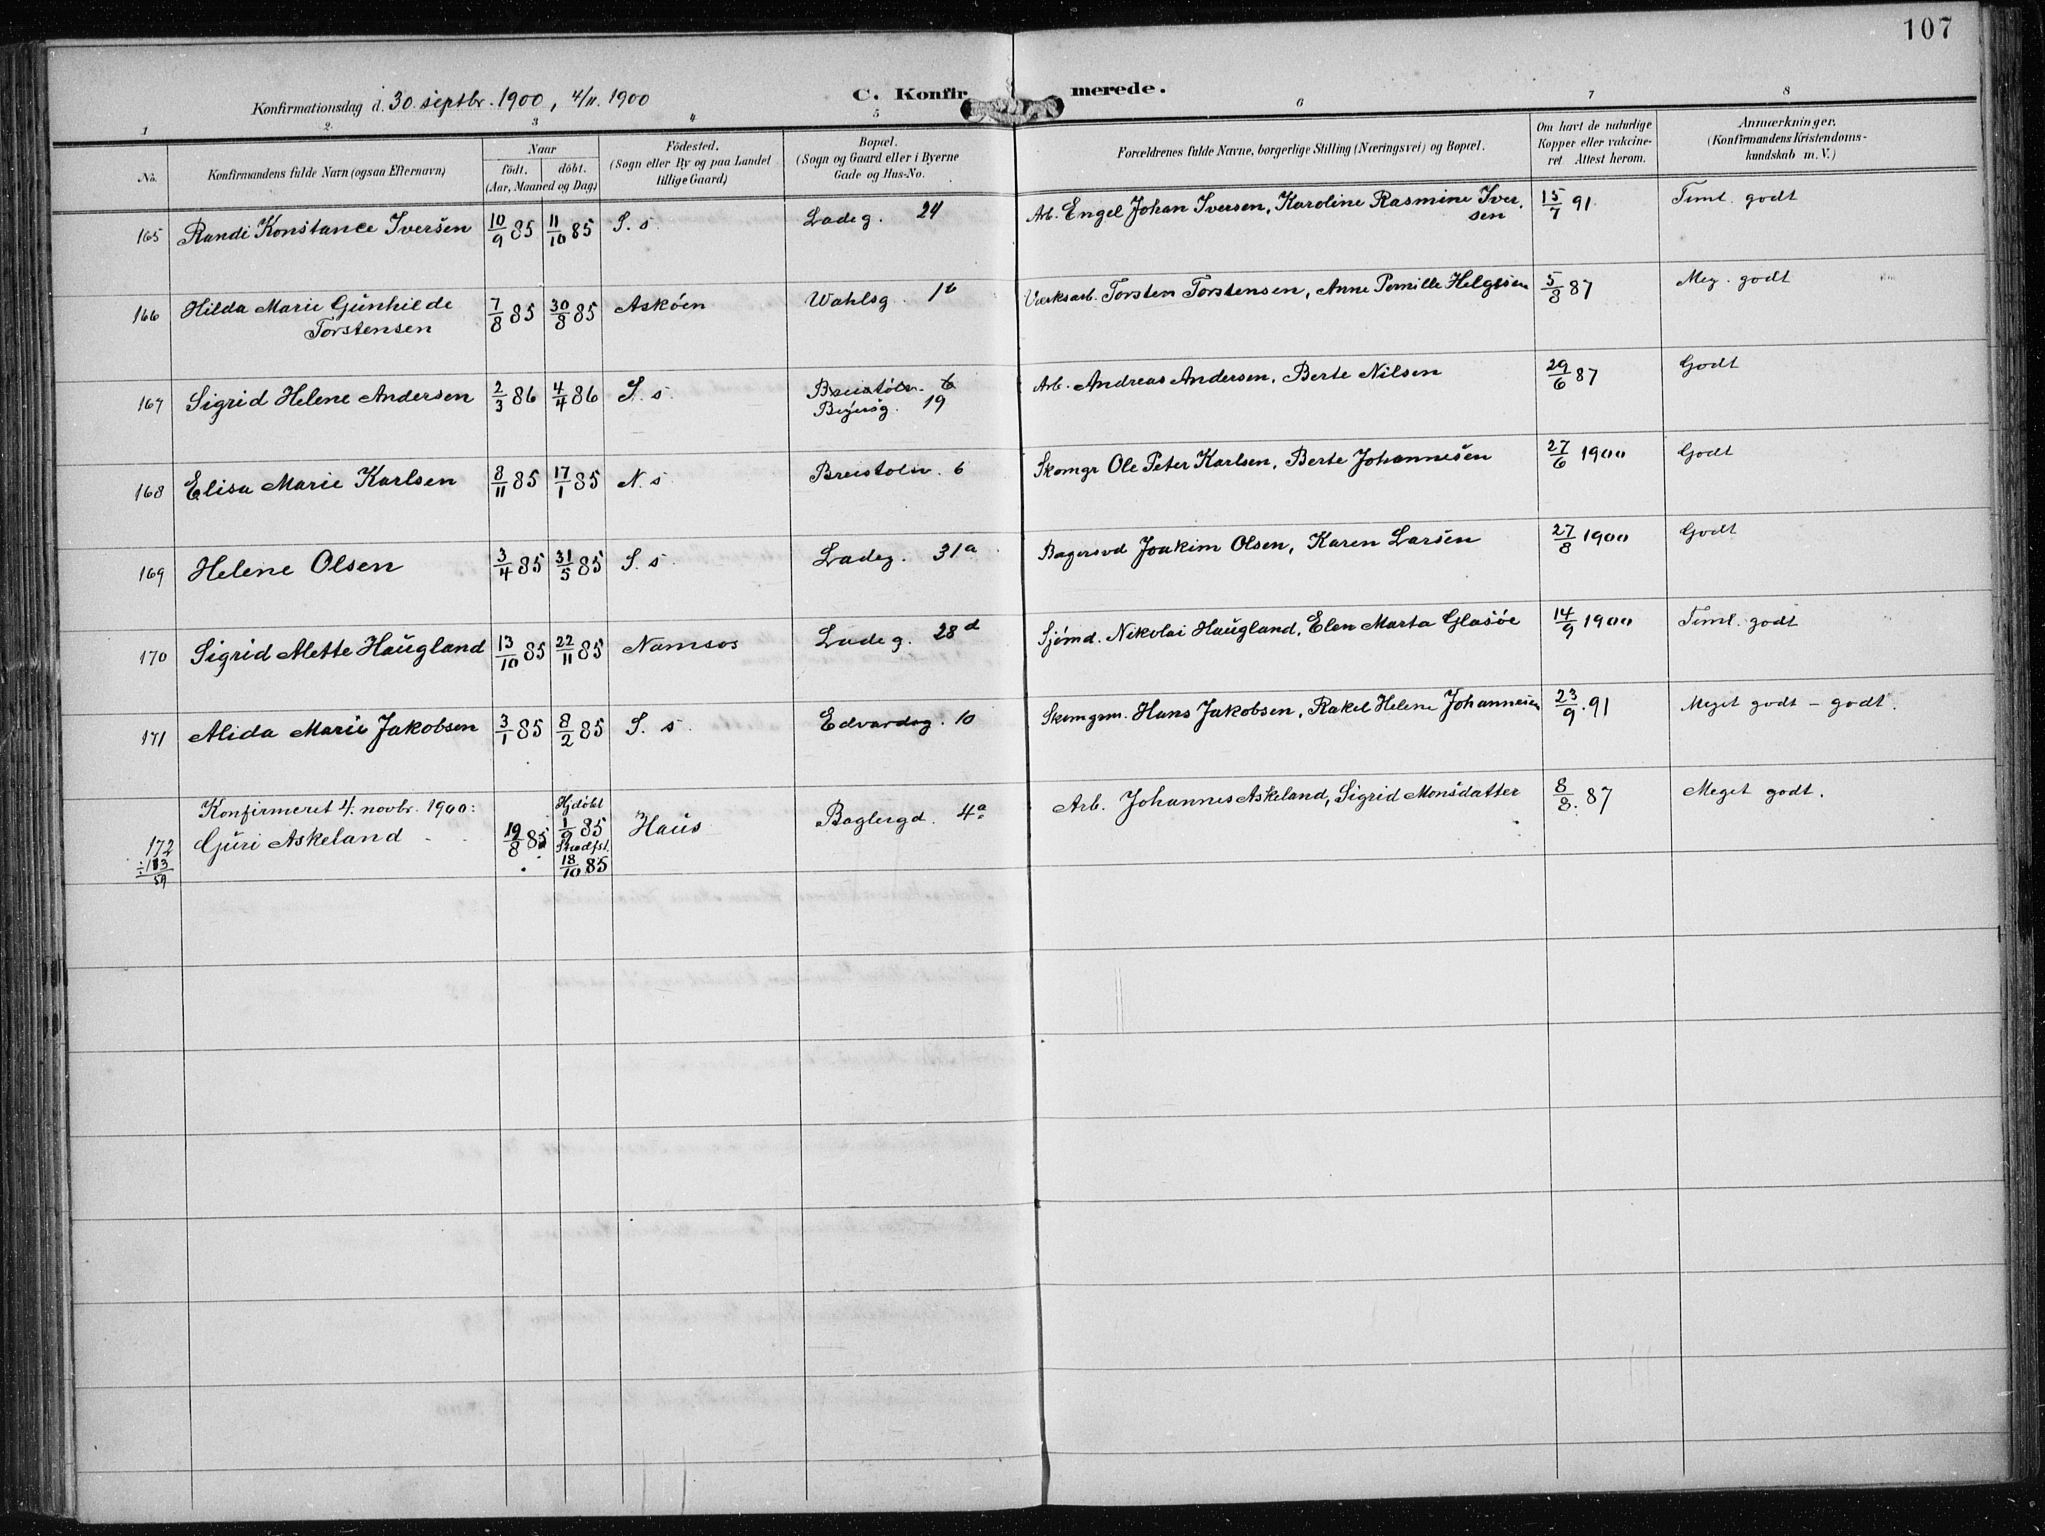 107
Konfirmationsdag d. 30 septbr. 1900, 4/11. 1900
C. Konfirmerede.
1 2. 3 4 5 6 7 8
No.
Konfirmandens fulde Navn (ogsaa Efternavn)
Naar
født. døbt.
(Aar, Maaned og Dag)
Fødested.
(Sogn eller By og paa Landet
tillige Gaard)
Bopæl.
(Sogn og Gaard eller i Byerne
Gade og Hus-No.
Forældrenes fulde Navne, borgerlige Stilling (Næringsvei) og Bopæl.
Om havt de naturlige
Kopper eller vakcine-
ret. Attest herom.
Anmærkninger.
(Konfirmandens Kristendoms-
kundskab m. V.)
165 Randi Konstance Iversen 10/9 85 11/10 85 S. s. Ladeg. 24 Arb. Engel Johan Iversen, Karoline Rasmine Iver,
sen 15/7 91 Teml. godt
166 Hilda Marie Gunhilde
Torstensen 7/8 85 30/8 85 Askøen Wahlsg. 1b Værksarb. Torsten Torstensen, Anne Pernille Helgesen 5/8 87 Meg. godt
167 Sigrid Helene Andersen 2/3 86 4/4 86 S. s. Breistølsv. 6
19 Arb. Andreas Andersen, Berte Nilsen 29/6 87 Godt
168 Elisa Marie Karlsen 8/11 85 17/1 85 N. s. Breistolsv. 6 Skomgr Ole Peter Karlsen, Berte Johannesen 27/6 1900 Godt
169 Helene Olsen 3/4 85 31/5 85 S. s. Ladeg. 31a Bagersvd Joakim Olsen, Karen Larsen 27/8 1900 Godt
170 Sigrid Alette Haugland 13/10 85 22/11 85 Namsos Ladeg. 28d Sjømd. Nikolai Haugland, Elen Marta Glasøe 14/9 1900 Teml. godt
171 Alida Marie Jakobsen 3/1 85 8/2 85 S. s. Edvardsg. 10 Skomgrm. Hans Jakobsen, Rakel Helene Johannesen 23/9. 91 Meget godt - godt.
Konfirmeret 4. novbr. 1900:
172 Guri Askeland 19/8 85 Hjdøbt
1/9 85
Stadfst.
18/10 85 Haus Baglergd. 4a Arb. Johannes Askeland, Sigrid Monsdatter 8/8. 87 Meget godt.
÷ 113
59